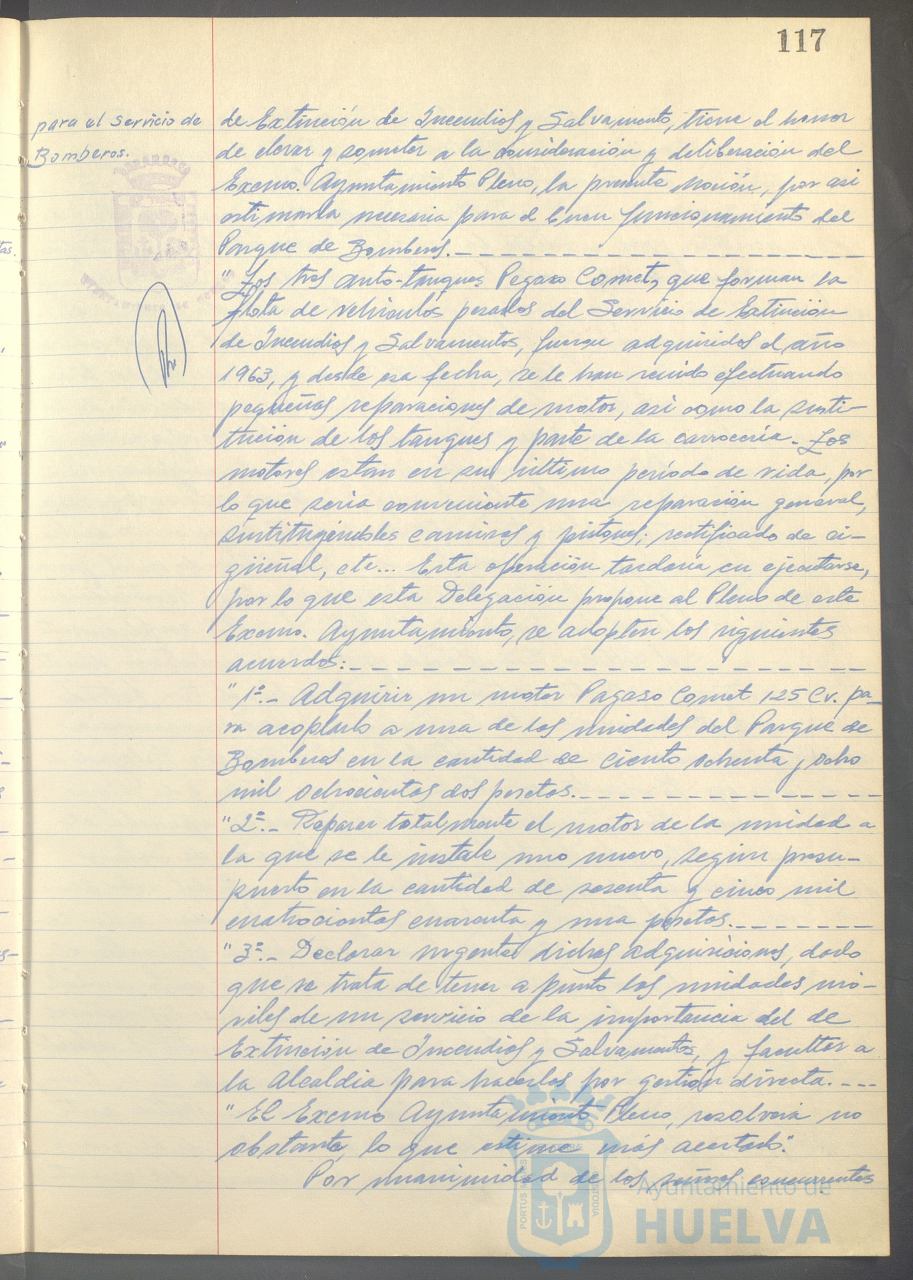 117
para el servicio de
Bomberos.
de Extinción de Incendios y Salvamento, tiene el honor
de elevar y someter a la consideración y deliberación del
Excmo. Ayuntamiento Pleno, la presente Moción, por asi
estimarla necesaria para el buen funcionamiento del
Parque de Bomberos.
"Los tres auto-tanques Pegaso Comet, que forman la
flota de vehículos pesados del Servicio de Extinción
de Incendios y Salvamentos, fueron adquiridos el año
1963, y desde esa fecha, se le han venido efectuando
pequeñas reparaciones de motor, asi como la susti-
tución de los tanques y parte de la carrocería. Los
motores estan en su último período de vida, por
lo que seria conveniente una reparación general,
sustituyéndoles camisas y pistones; rectificado de ci-
güeñal, etc... Esta operación tardaría en ejecutarse,
por lo que esta Delegación propone al Pleno de este
Excmo. Ayuntamiento, se adopten los siguientes
acuerdos:
"1º.- Adquirir un motor Pagaso Comet 125 Cv. pa-
ra acoplarlo a una de las unidades del Parque de
Bomberos en la cantidad de ciento ochenta y ocho
mil ochocientas dos pesetas.
"2º.- Reparar totalmente el motor de la unidad a
la que se le instale uno nuevo, según presu-
puesto en la cantidad de sesenta y cinco mil
cuatrocientas cuarenta y una pesetas.
"3º.- Declarar urgente dichas adquisiciones, dado
que se trata de tener a punto las unidades mó-
viles de un servicio de la importancia del de
Extinción de Incendios y Salvamentos, y facultar a
la Alcaldia para hacerlas por gestión directa.
"El Excmo Ayuntamiento Pleno, resolverá no
obstante, lo que estime más acertado".
Por unanimidad de los señores concurrentes
Ayuntamiento de
HUELVA